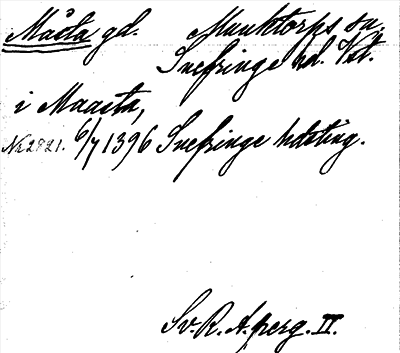 Måsta gd. Munktorps sn.
Snefringe hd. Vstl.
i Maasta,
No 2821. 6/7 1396 Snefringe hdsting.
Sv. R. A. perg. II.